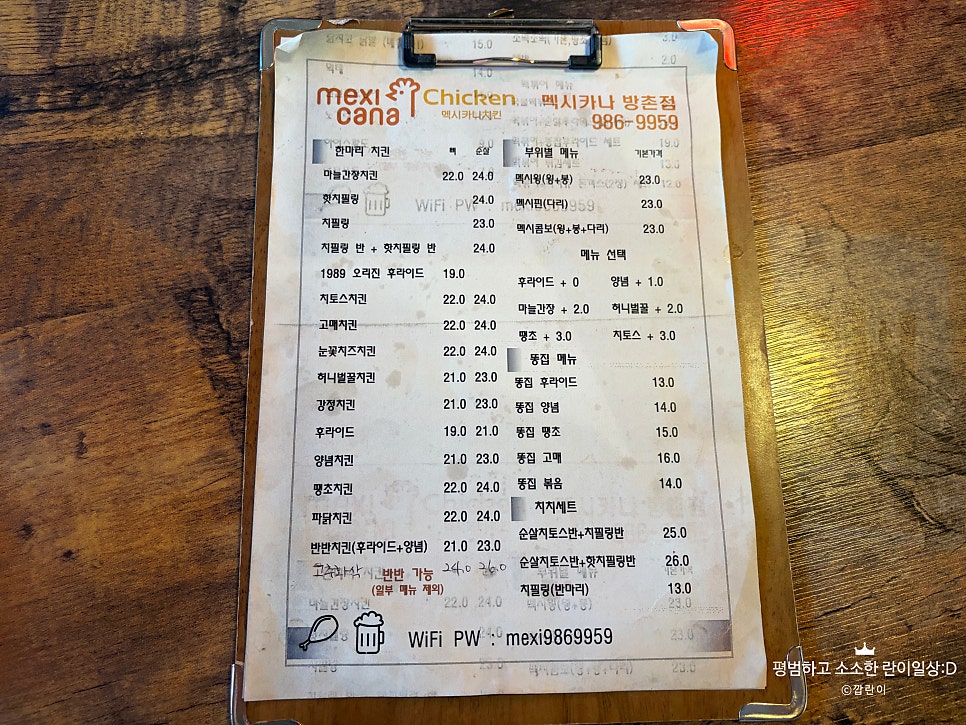 mexi
cana
Chicken
멕시카나치킨
멕시카나 방촌점
986-9959
한마리 치킨 뼈 순살
마늘간장치킨 22.0 24.0
핫치필링 24.0
치필링 23.0
치필링 반 + 핫치필링 반 24.0
1989 오리진 후라이드 19.0
치토스치킨 22.0 24.0
고매치킨 22.0 24.0
눈꽃치즈치킨 22.0 24.0
허니벌꿀치킨 21.0 23.0
강정치킨 21.0 23.0
후라이드 19.0 21.0
양념치킨 21.0 23.0
땡초치킨 22.0 24.0
파닭치킨 22.0 24.0
반반치킨(후라이드+양념) 21.0 23.0
24.0 26.0
반반 가능
(일부 메뉴 제외)
부위별 메뉴 기본가격
멕시윙(윙+봉) 23.0
멕시핀(다리) 23.0
멕시콤보(윙+봉+다리) 23.0
메뉴 선택
후라이드 + 0 양념 + 1.0
마늘간장 + 2.0 허니벌꿀 + 2.0
땡초 + 3.0 치토스 + 3.0
똥집 메뉴
똥집 후라이드 13.0
똥집 양념 14.0
똥집 땡초 15.0
똥집 고매 16.0
똥집 볶음 14.0
치치세트
순살치토스반+치필링반 25.0
순살치토스반+핫치필링반 26.0
치필링(반마리) 13.0
WiFi PW : mexi9869959
평범하고 소소한 란이일상:D
©깜란이